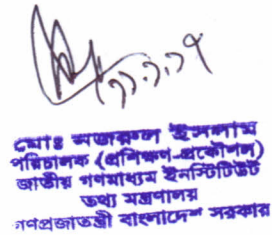 ২১.২.১৭
মোঃ নজরুল ইসলাম
পরিচালক (প্রশিক্ষণ-প্রকৌশল)
জাতীয় গণমাধ্যম ইনস্টিটিউট
তথ্য মন্ত্রণালয়
গণপ্রজাতন্ত্রী বাংলাদেশ সরকার